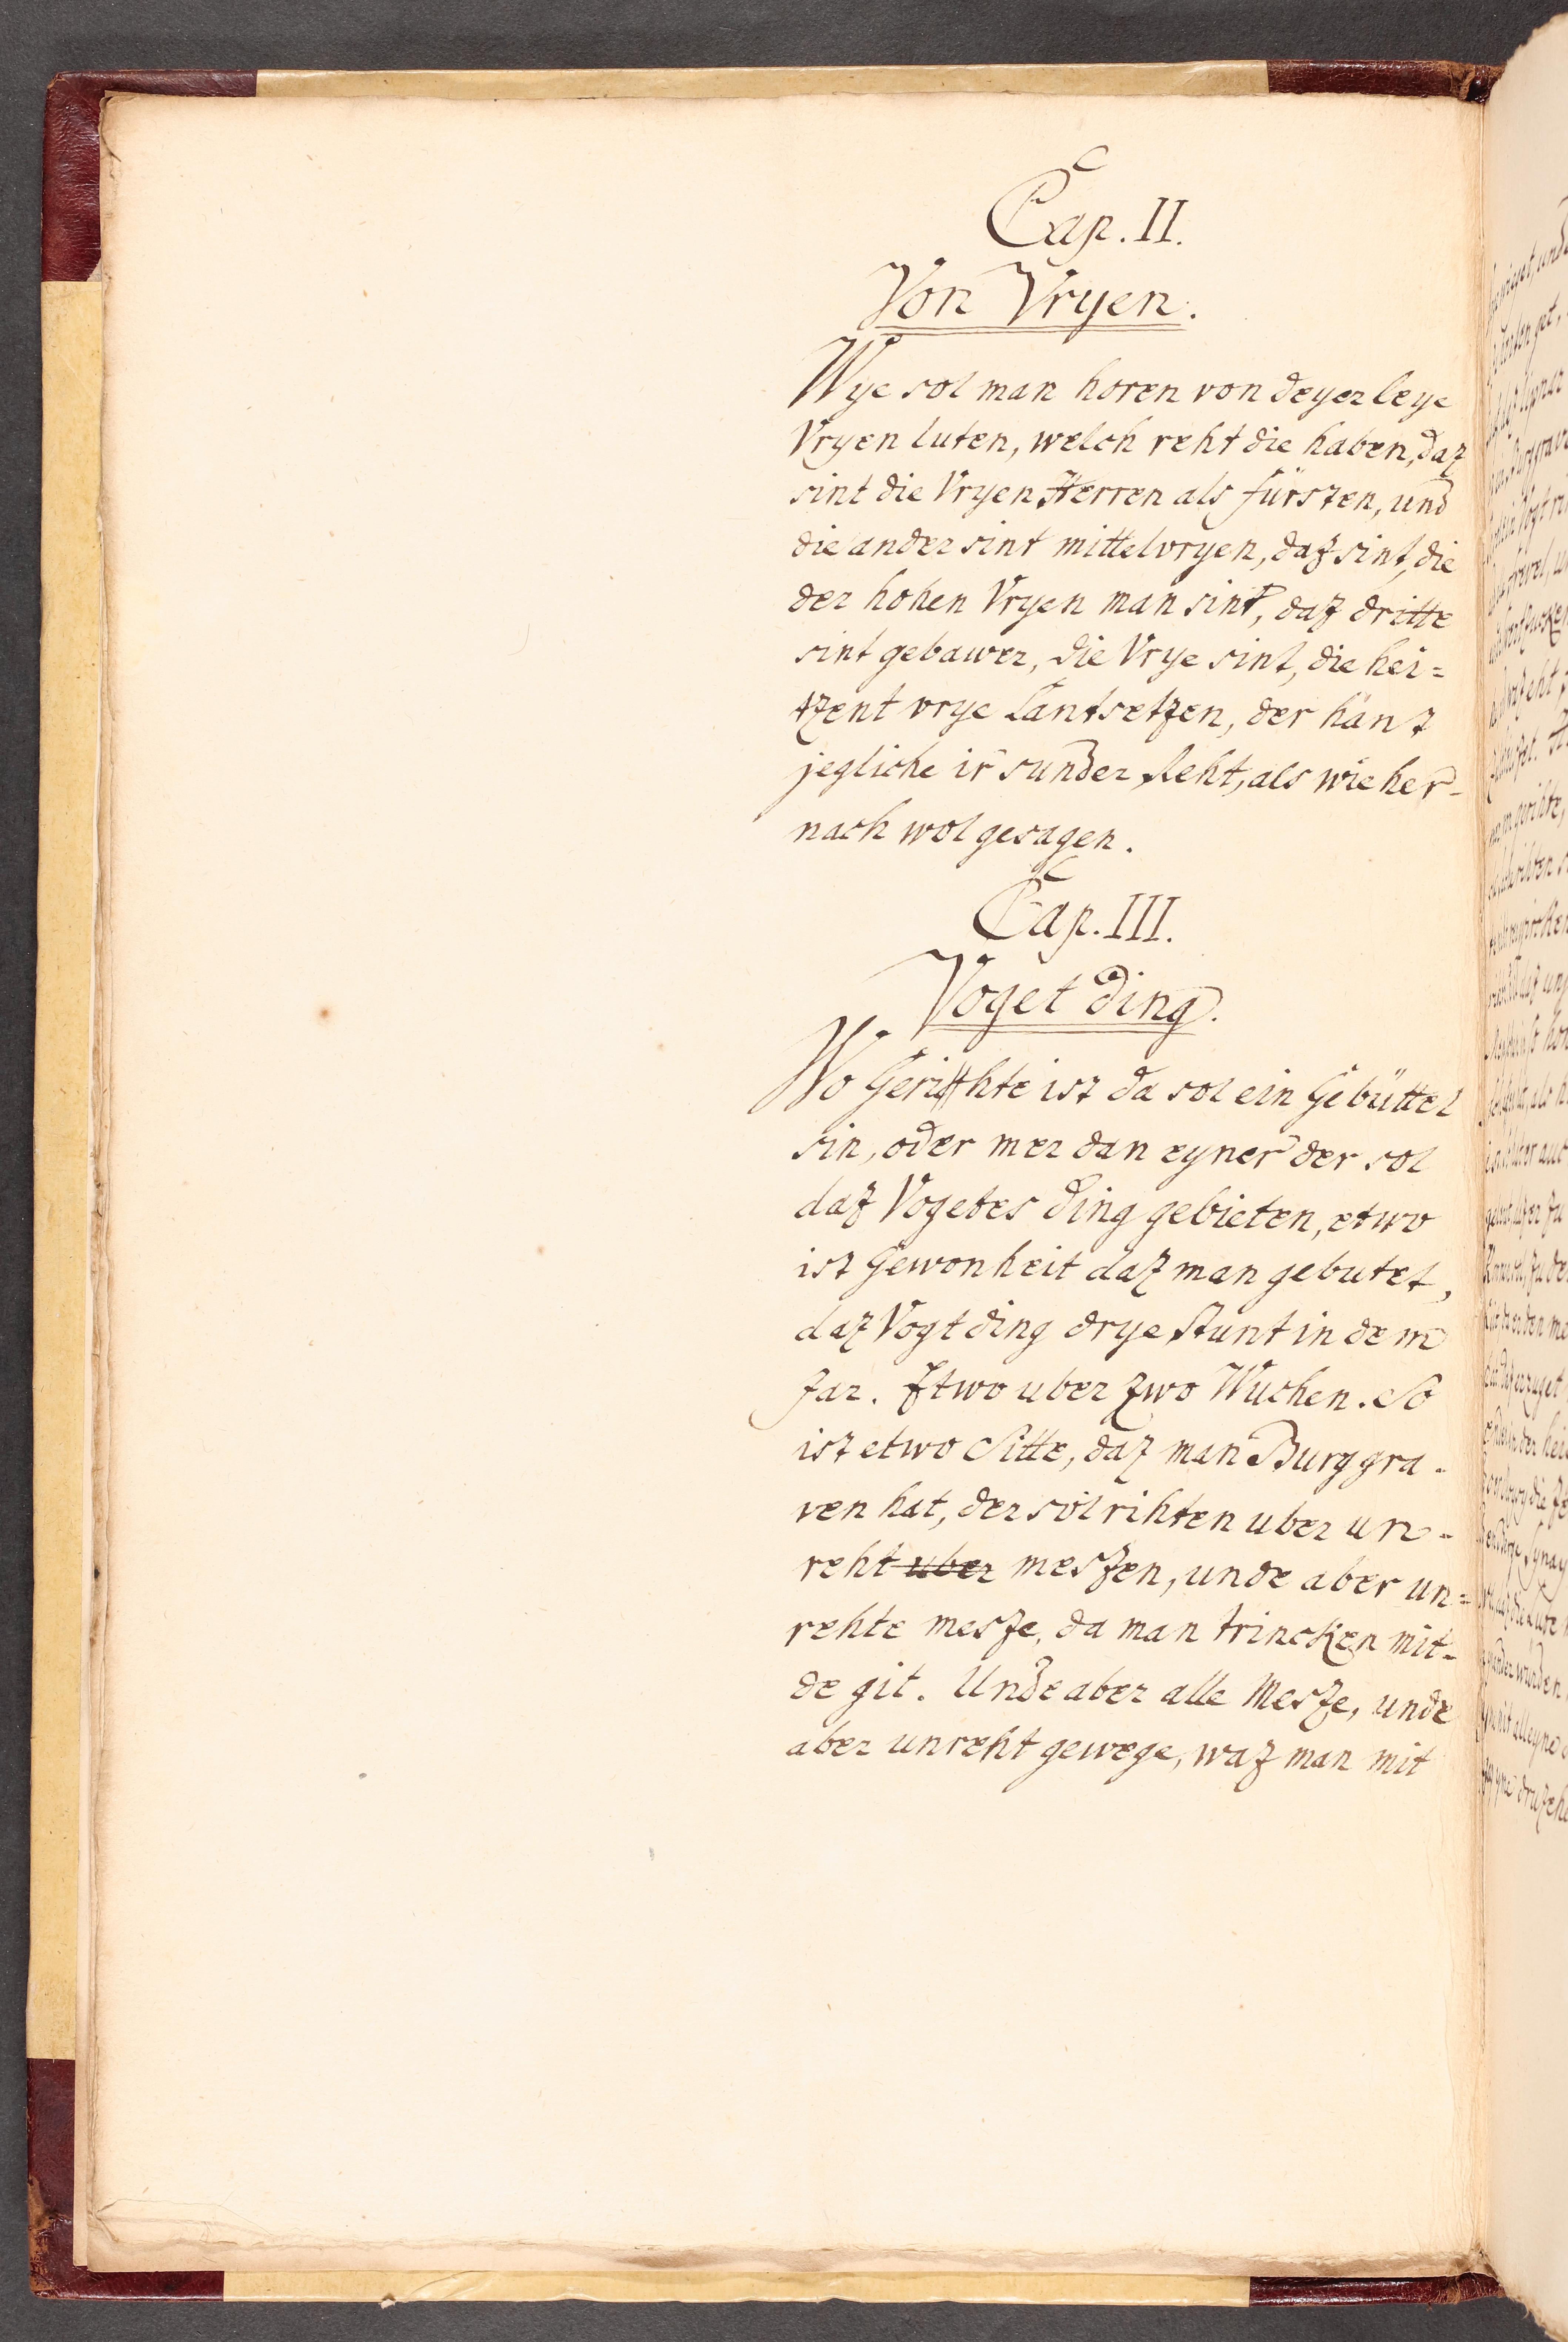 Cap. II.
Von Vryen.
Wye sol man horen von dryerleye
Vryen luten, welch reht die haben, daz
sint die Vryen Herren als fürsten, und
die ander sint mittelvryen, daz sint, die
der hohen Vryen man sint, daz dritte
sint gebawer, die Vrye sint, die hei=
tzent vrye Lantsetzen, der hant
jegliche ir sunder Reht, als wie her-
nach wol gesagen.
Cap. III.
Voget ding.
Wo Gerihte ist da sol ein Gebüttel
sin, oder mer dan eyner der sol
daz Vogetes ding gebieten, etwo
ist Gewonheit daz man gebutet,
daz Vogt ding drye stunt in dem
Jar. Etwo uber zwo Wuchen. So
ist etwo Sitte, daz man Burggra-
ven hat, der sol rihten uber un-
reht uber meszen, unde aber un=
rehte mesze, da man trincken mit-
de git. Unde aber alle Mesze, unde
aber unreht gewege, waz man mit